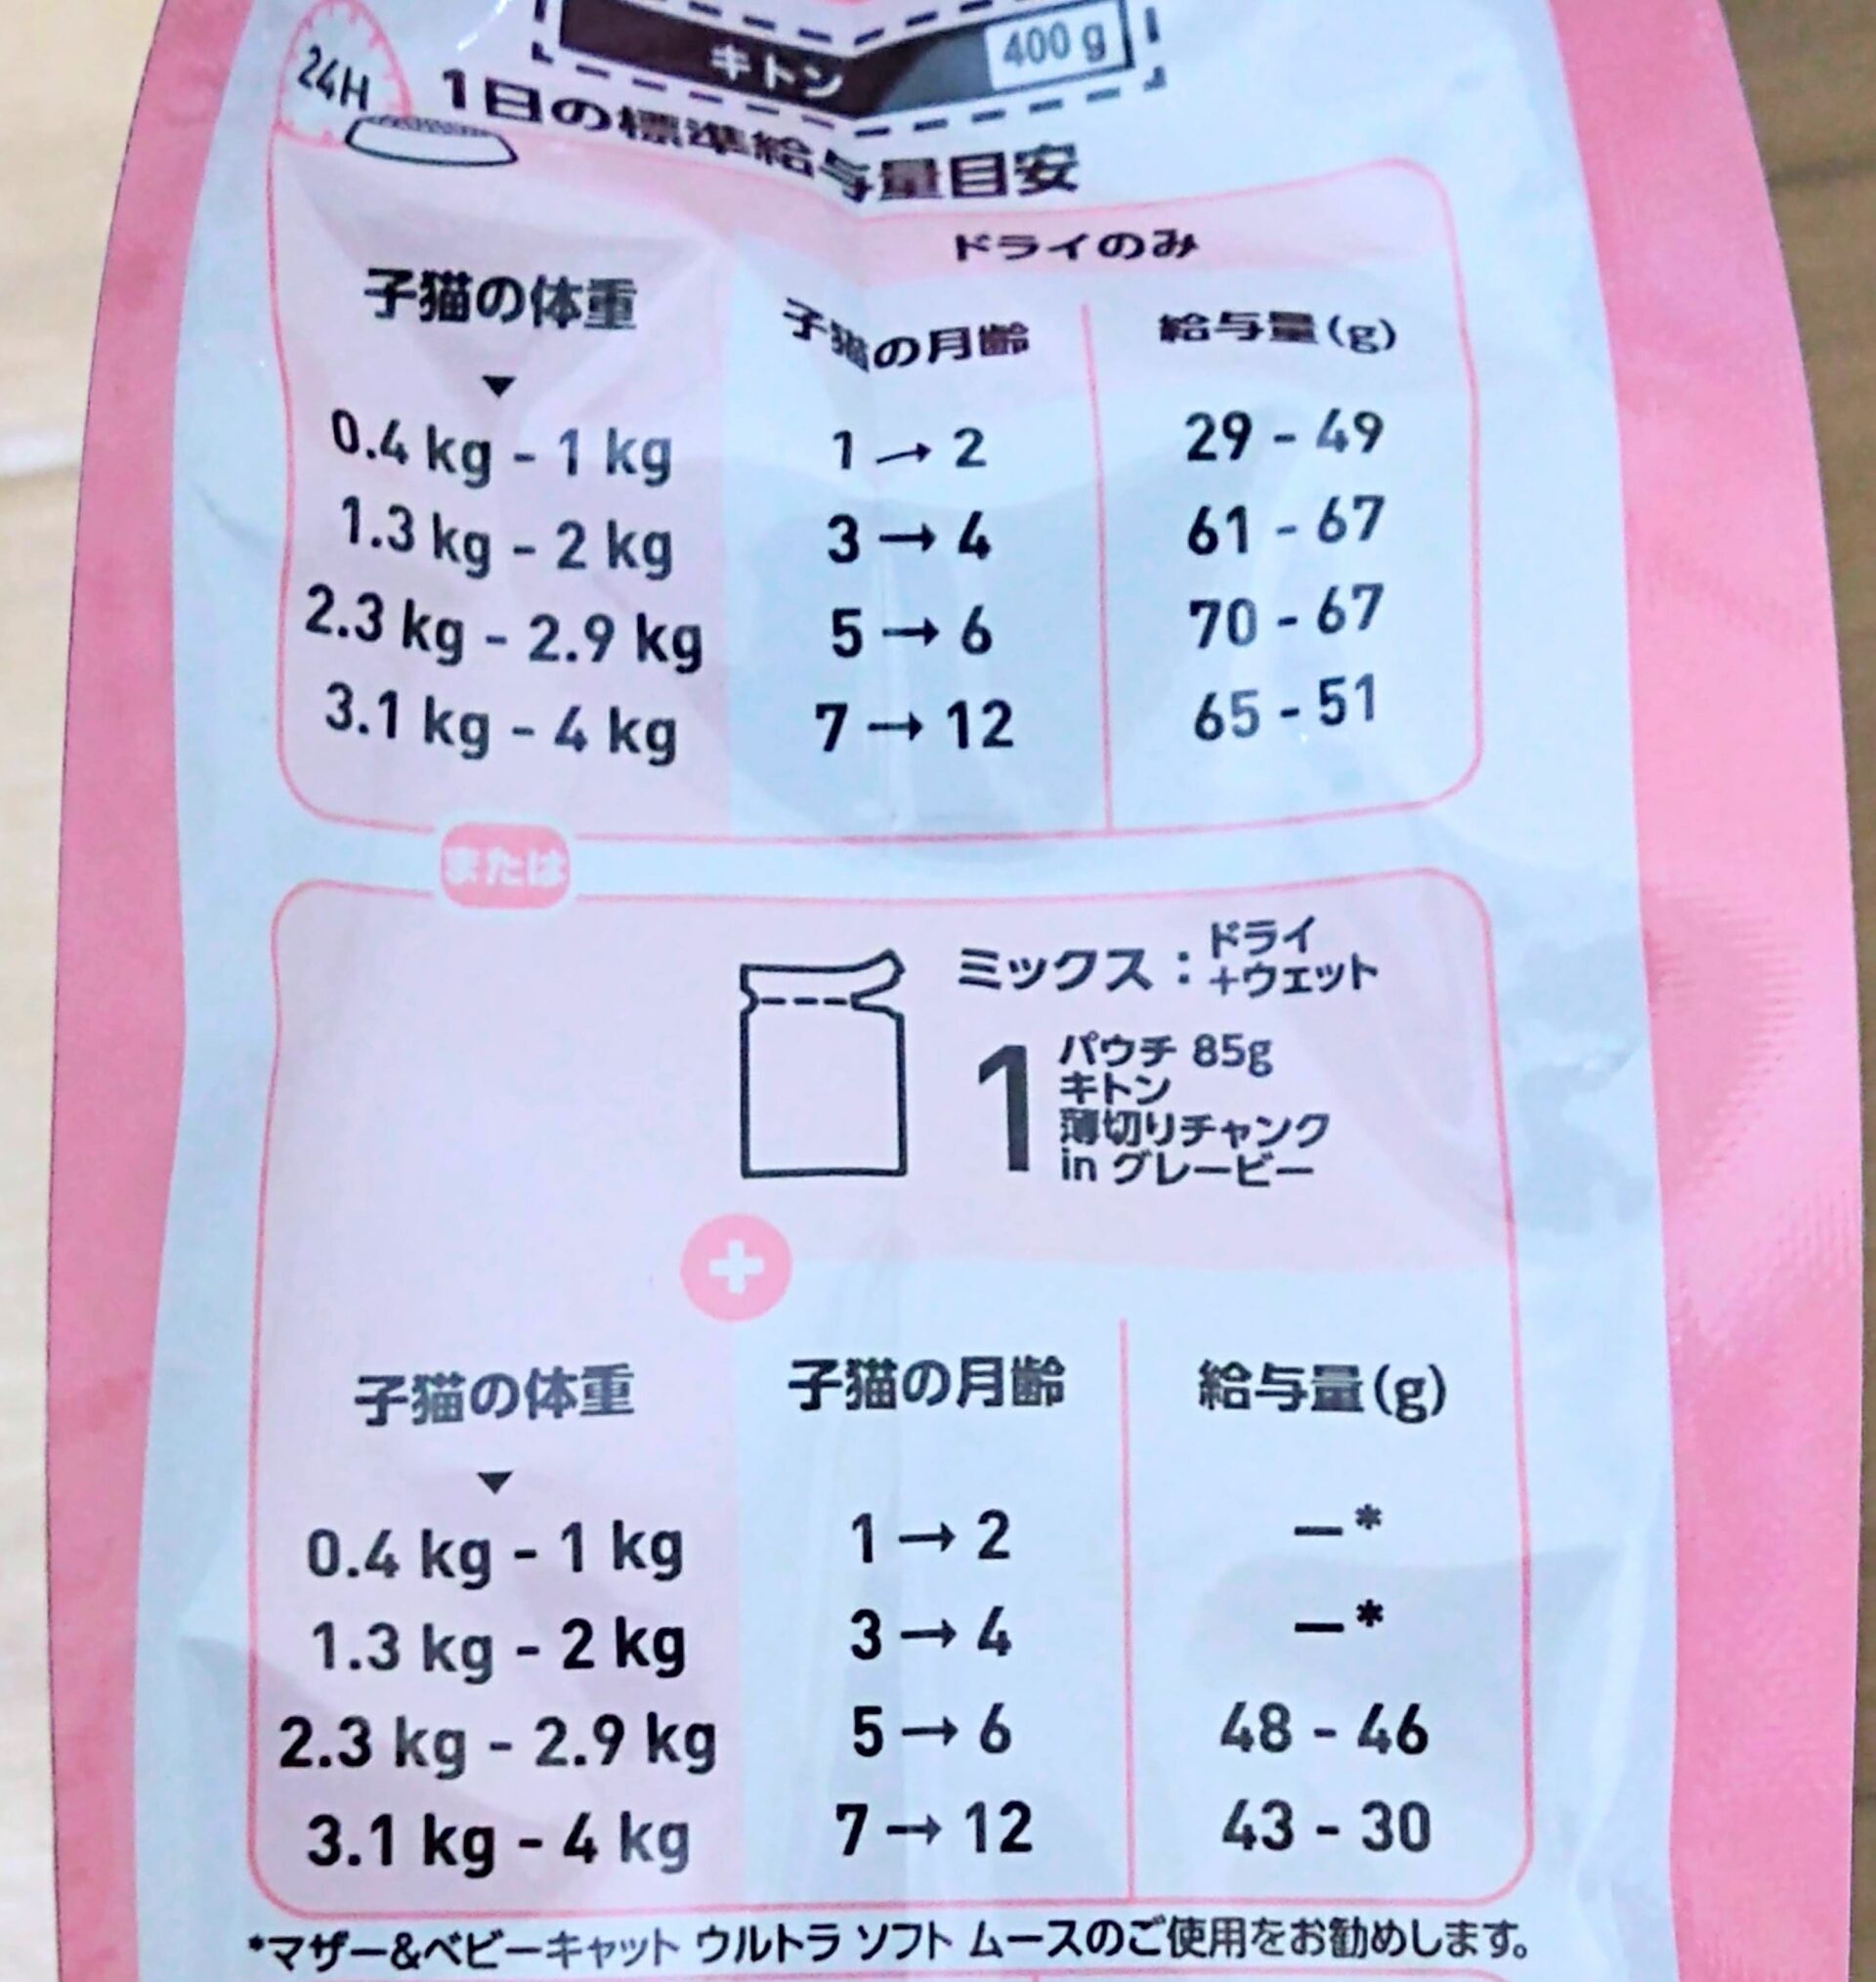 キトン 400 g
24H
1日の標準給与量目安
ドライのみ
子猫の体重 子猫の月齢 給与量(g)
▼
0.4 kg - 1 kg 1→2 29 - 49
1.3 kg - 2 kg 3→4 61 - 67
2.3 kg - 2.9 kg 5→6 70 - 67
3.1 kg - 4 kg 7→12 65 - 51
または
ミックス：ドライ
+ウェット
1 パウチ 85g
キトン
薄切りチャンク
in グレービー
+
子猫の体重 子猫の月齢 給与量(g)
▼
0.4 kg - 1 kg 1→2 —*
1.3 kg - 2 kg 3→4 —*
2.3 kg - 2.9 kg 5→6 48 - 46
3.1 kg - 4 kg 7→12 43 - 30
*マザー&ベビーキャット ウルトラ ソフト ムースのご使用をお勧めします。